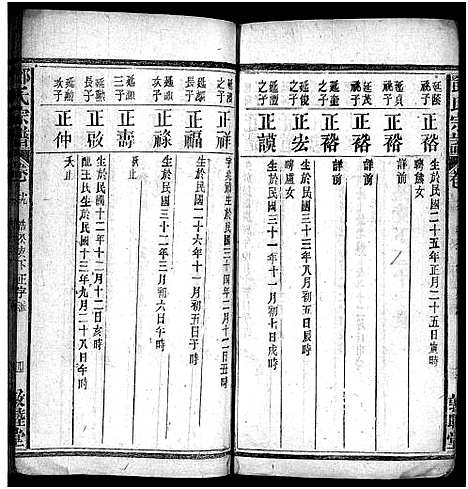 氏宗譜 卷
延
祧子
正裕
生於民國二十五年正月二十五日寅時
聘
女
延茂
祧子
正裕
詳前
延貞
祧子
正裕
詳前
延俊
之子
正宏
生於民國三十三年八月初五日辰時
聘盧女
延童
之子
正謨
生於民國三十一年十一月初七日辰時
之子
正祥
生於民國三十四年二月十一日
時
延
次子
正福
生於民國二十六年十一月初五日子時
長子
正祿
生於民國三十二年三月初六日午時
延
三子
正壽
殀止
延勳
長子
正啟
生於民國十二年十二月十二日亥時
配王氏生於民國十三年九月二十八日午時
延勳
次子
正仲
殀止
氏宗譜 卷
下正字派
四
敦睦堂